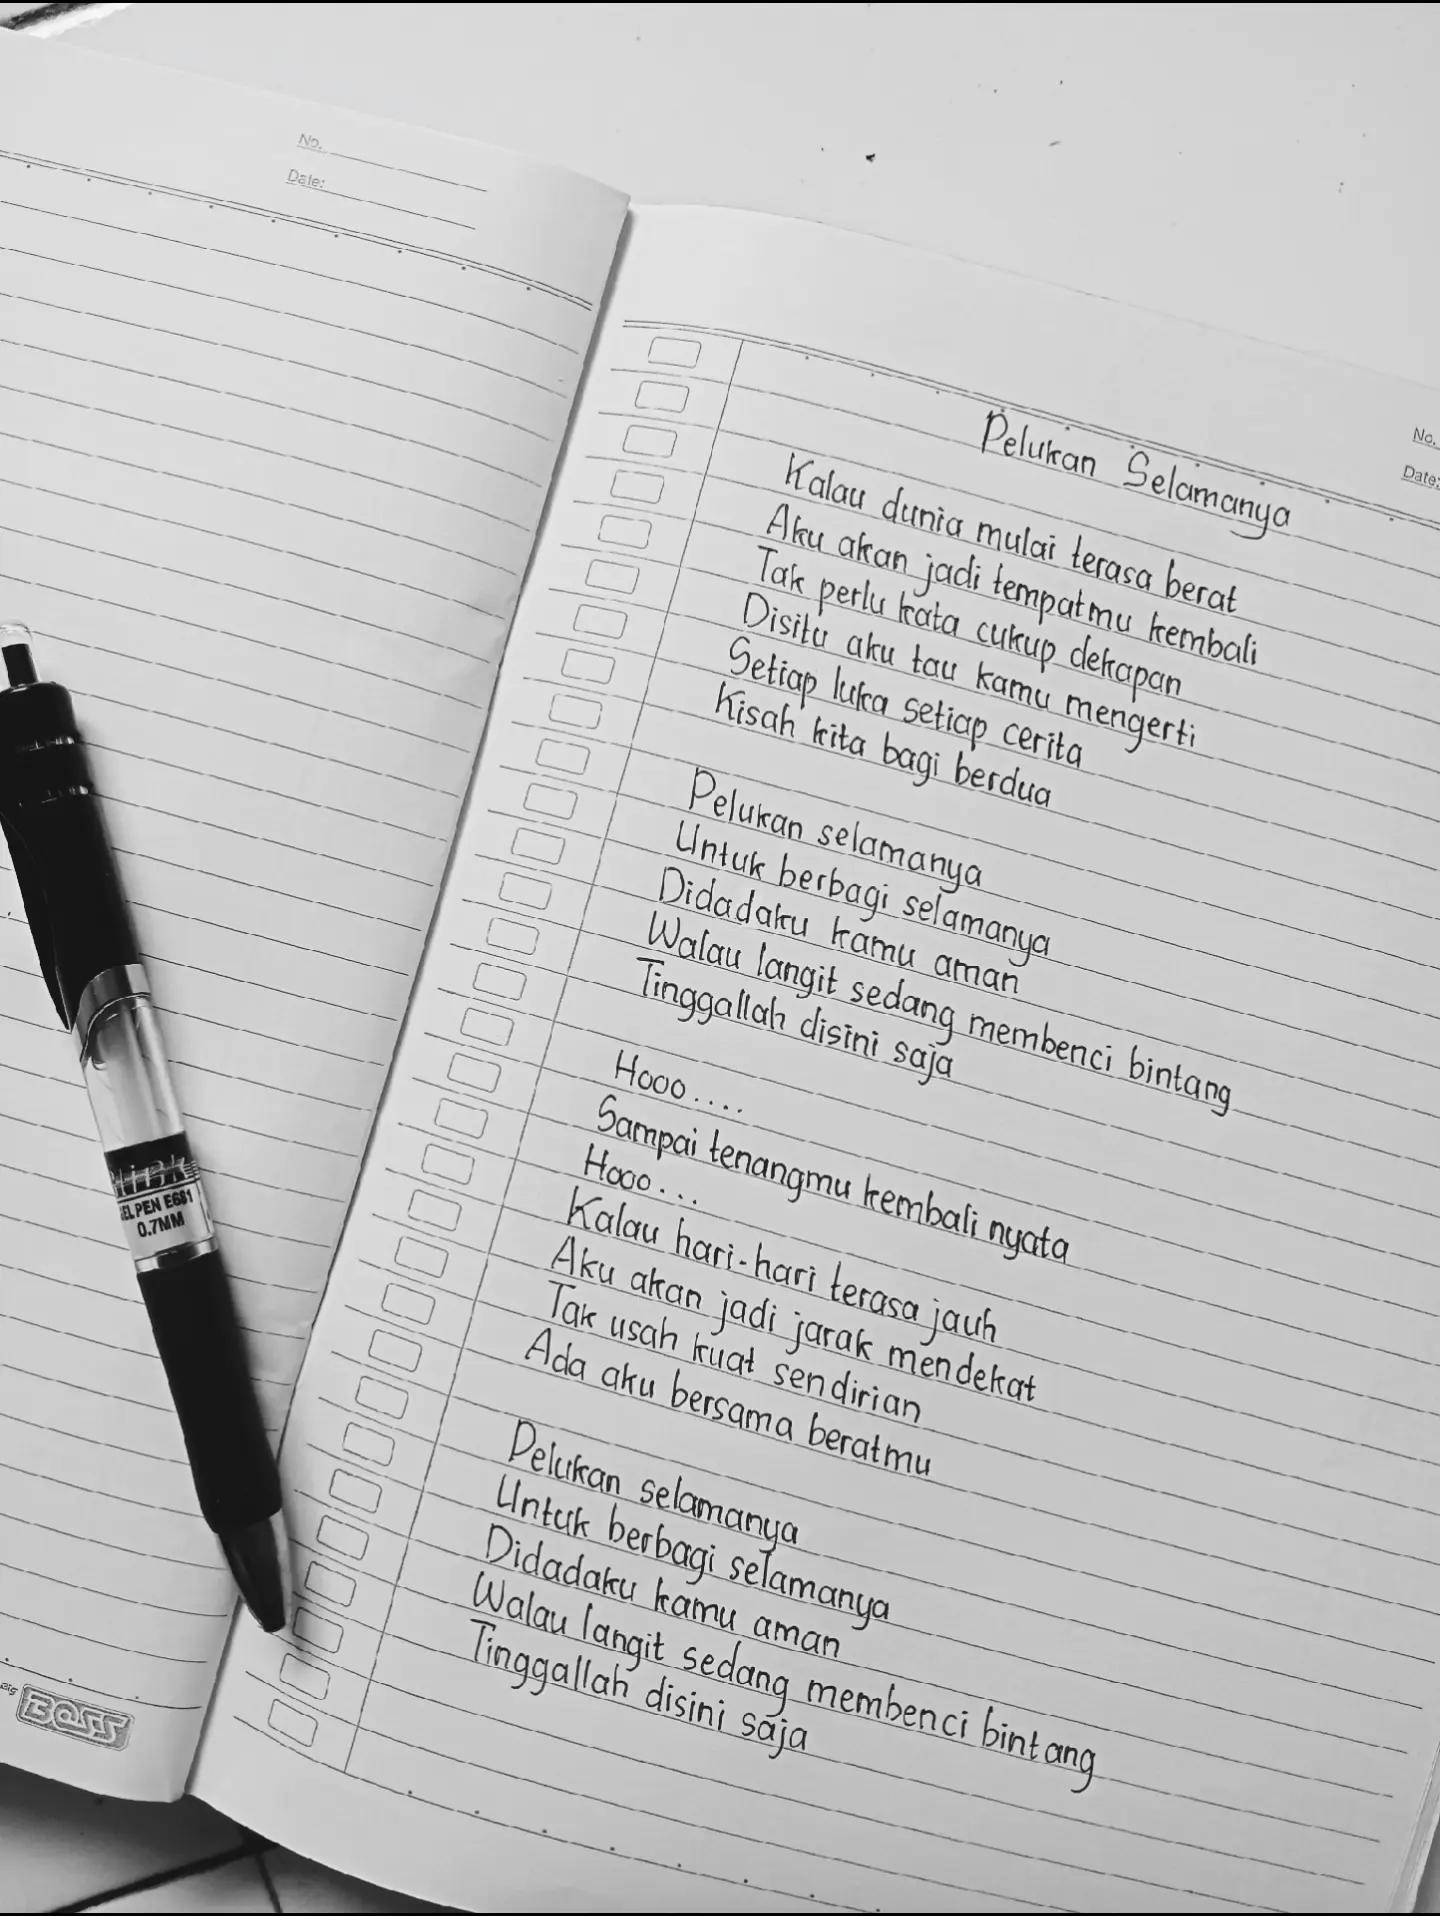 No.
Date:
No.
Date:
Pelukan Selamanya
Kalau dunia mulai terasa berat
Aku akan jadi tempatmu kembali
Tak perlu kata cukup dekapan
Disitu aku tau kamu mengerti
Setiap luka setiap cerita
Kisah kita bagi berdua
Pelukan selamanya
Untuk berbagi selamanya
Didadaku kamu aman
Walau langit sedang membenci bintang
Tinggallah disini saja
Hooo....
Sampai tenangmu kembali nyata
Hooo...
Kalau hari-hari terasa jauh
Aku akan jadi jarak mendekat
Tak usah kuat sendirian
Ada aku bersama beratmu
Pelukan selamanya
Untuk berbagi selamanya
Didadaku kamu aman
Walau langit sedang membenci bintang
Tinggallah disini saja
PEN E681
0.7MM
BOSS